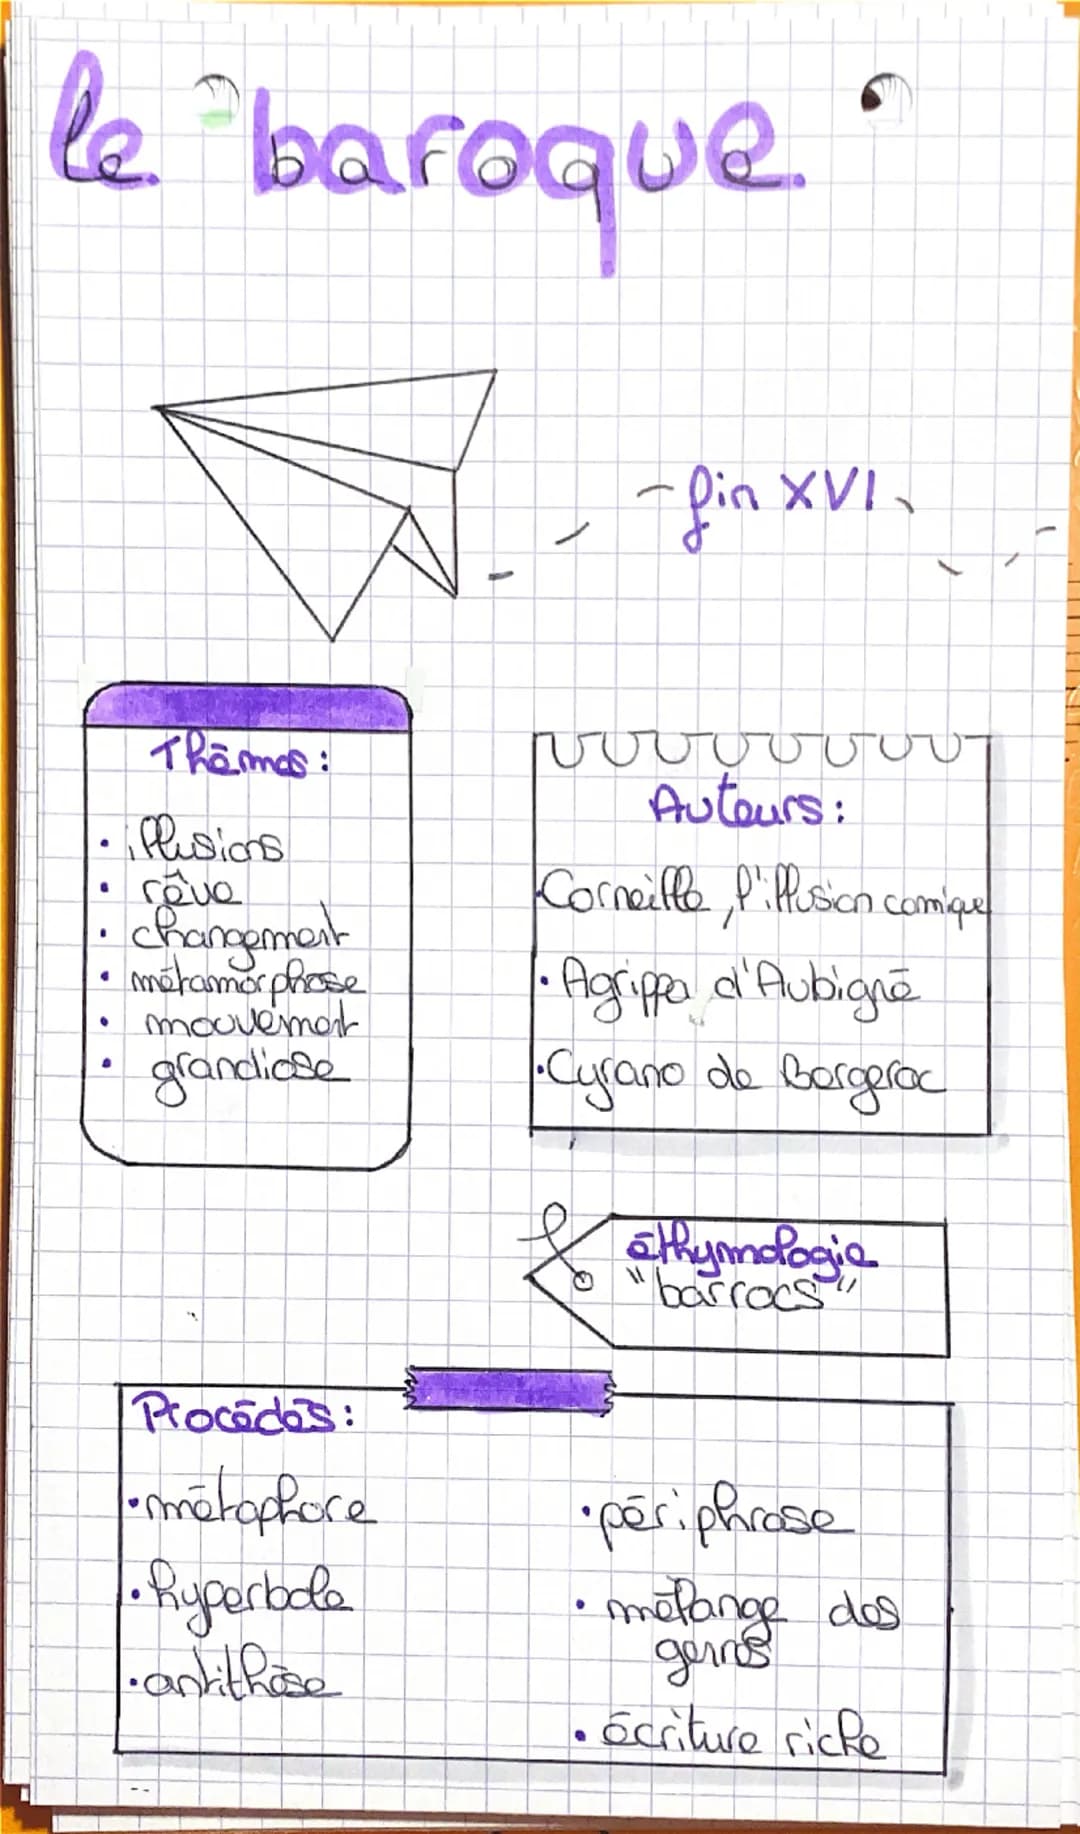 le baroque.
fin XVI
Thēmes :
• illusions
• rêve
• changement
• mētamorphose
• mouvement
• grandiose
Auteurs :
Corneille, l'illusion comique
• Agrippa d'Aubignē
• Cyrano de Bergerac
ēthymologie
"barrocs"
Procēdēs :
• mētaphore
• hyperbole
• antithēse
• pēriphrase
• mēlange des
genres
• ēcriture riche